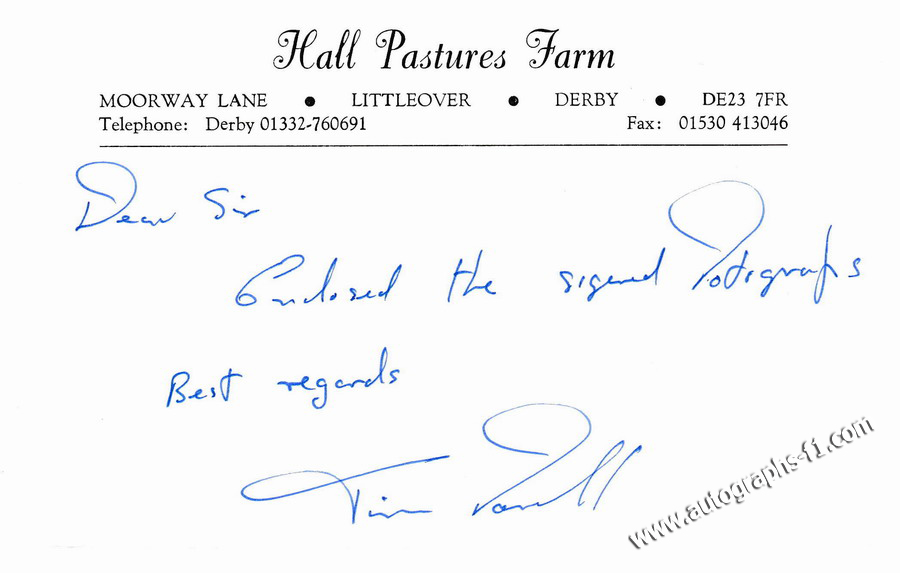 Hall Pastures Farm
MOORWAY LANE ● LITTLEOVER ● DERBY ● DE23 7FR
Telephone: Derby 01332-760691 Fax: 01530 413046
Dear Sir
Enclosed the signed Potographs
Best regards
Tim Parnell
www.autographs-f1.com